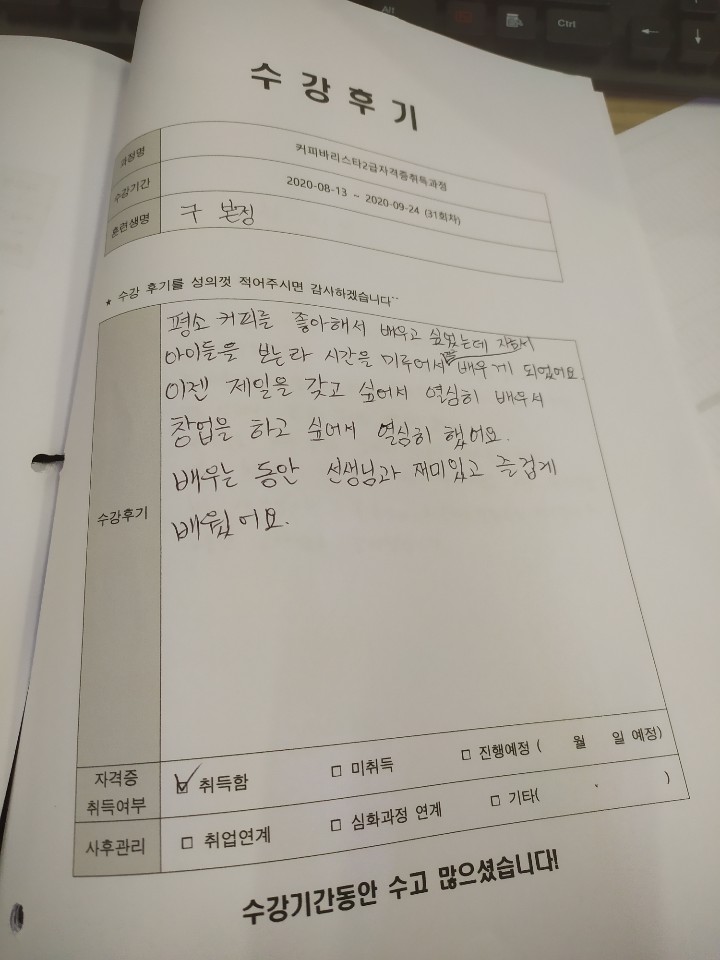 Alt
Ctrl
수 강 후 기
과정명 커피바리스타2급자격증취득과정
수강기간 2020-08-13 ~ 2020-09-24 (31회차)
훈련생명 구 본정
★ 수강 후기를 성의껏 적어주시면 감사하겠습니다^^
수강후기
평소 커피를 좋아해서 배우고 싶었는데
아이들을 보는라 시간을 미루어서 배우게 되었어요.
이젠 제일을 갖고 싶어서 열심히 배우서
창업을 하고 싶어서 열심히 했어요.
배우는 동안 선생님과 재미있고 즐겁게
배웠어요.
자격증 취득여부 ☑ 취득함 □ 미취득 □ 진행예정 ( 월 일 예정)
사후관리 □ 취업연계 □ 심화과정 연계 □ 기타( )
수강기간동안 수고 많으셨습니다!